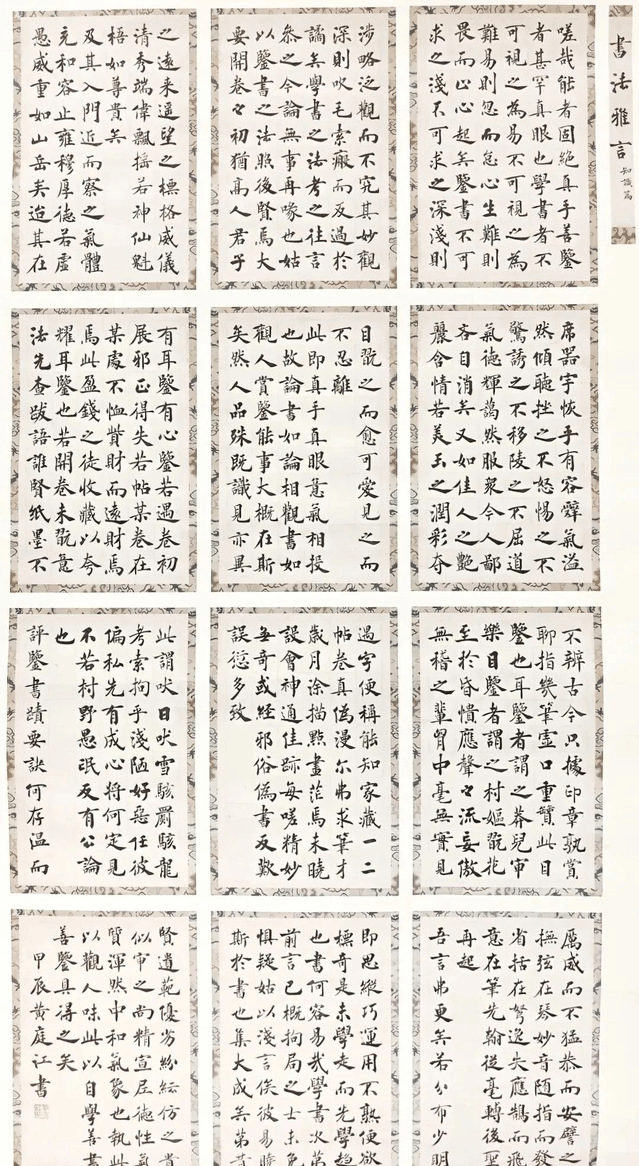 書法雅言
知識篇
嗟哉能者固絕真手善鑒
者甚罕真眼也學書者不
可視之為易不可視之為
難易則忽而怠心生難則
畏而止心起矣鑒書不可
求之淺不可求之深淺則
涉略泛觀而不究其妙觀
深則吹毛索瘢而反過於
譎矣學書之法考之往言
參之今論無事再喙也姑
以鑒書之法照後賢焉大
要開卷之初猶高人君子
之遠来遥望之標格威儀
清秀端偉飄摇若神仙魁
梧如尊貴矣
及其入門近而察之氣體
充和容止雍穆厚德若虛
愚威重如山岳矣迨其在
席器宇恢乎有容辭氣溢
然傾聽挫之不怒惕之不
驚誘之不移陵之不屈道
氣德輝藹然服衆令人鄙
吝自消矣又如佳人之艷
麗含情若美玉之潤彩奪
目翫之而愈可愛見之而
不忍離
此即真手真眼意氣相投
也故論書如論相觀書如
觀人賞鑒能事大概在斯
矣然人品殊既識見亦異
有耳鑒有心鑒若遇卷初
展邪正得失若帖某卷在
某處不恤貲財而遠財焉
焉此盈錢之徒收藏以夸
耀耳鑒也若開卷未翫意
法先查跋語誰賢紙墨不
不辨古今只據印章孰賞
聊指幾筆虛口重贊此目
鑒也耳鑒者謂之莽兒审
樂目鑒者謂之村嫗翫花
至於昏憒應聲之流妄傲
無稽之輩胸中毫無實見
過字便稱能知家藏一二
帖卷真僞漫尔弗求筆才
歲月涂描點畫茫焉未曉
設會神通佳跡每嗟精妙
無奇或經邪俗僞書反歎
誤愆多致
此謂吠日吠雪駭罽駭龍
考索拘乎淺陋好惡任彼
偏私先有成心將何定見
不若村野愚氓反有公論
也
評鑒書蹟要訣何存温而
厲威而不猛恭而安譬之
撫弦在琴妙音随指而發
省括在弩逸矢應鵠而飛
意在筆先翰從毫轉後聖
再起
吾言弗更矣若分布少明
即思縱巧運用不熟便欲
標奇是未學走而先學趨
也書何容易哉學書次第
前言已概拘局之士未免
惧疑姑以淺言俟彼易曉
斯於書也集大成矣第昔
賢遺範優劣紛紜仿之貴
似审之尚精宣尼德性氣
質渾然中和氣象也執此
以觀人味此以自學善書
善鑒具得之矣
甲辰黄庭江書